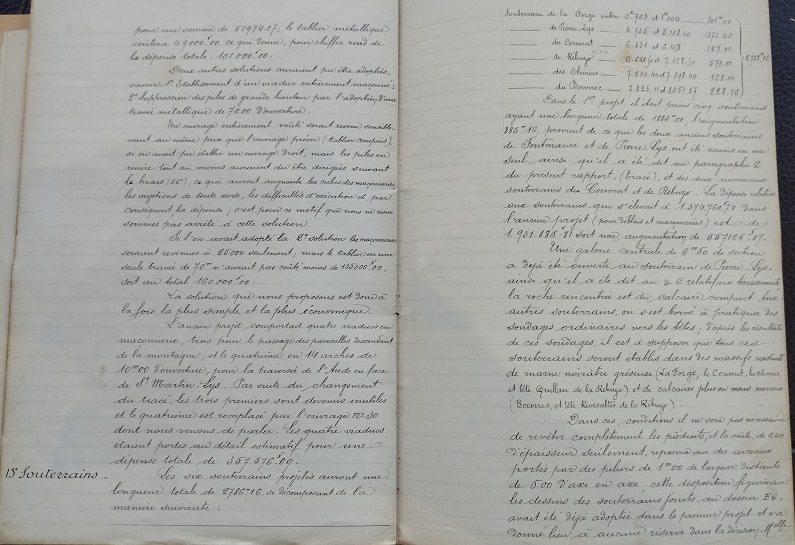 pour une somme de 51974.07; le tablier métallique
coûtera 49000f.00 ce qui donne, pour chiffre rond de
la dépense totale, 101000f.00.
Deux autres solutions auraient pu être adoptées,
savoir 1° Etablissement d'un viaduc entièrement maçonné;
2° suppression des piles de grande hauteur par l'adoption d'une
travée métallique de 70.00 d'ouverture.
Un ouvrage entièrement voûté serait revenu sensible-
ment au même prix que l'ouvrage prévu (tablier compris),
si on avait pu établir un ouvrage droit, mais les piles en
rivière tout au moins auraient dû être dirigées suivant
le biais (56°), ce qui aurait augmenté les cubes des maçonneries,
les sujétions de toute sorte, les difficultés d'exécution et, par
conséquent la dépense; c'est pour ce motif que nous ne nous
sommes pas arrêté à cette solution.
Si l'on avait adopté la 2e solution les maçonneries
seraient revenues à 25000 seulement, mais le tablier en une
seule travée de 70m n'aurait pas coûté moins de 135000f.00,
soit au total 160000f.00
La solution que nous proposons est donc à
la fois, la plus simple et la plus économique.
L'ancien projet comportait quatre viaducs en
maçonnerie, trois pour le passage des ravins descendant
de la montagne, et le quatrième en 14 arches de
10m00 d'ouverture, pour la traversée de l'Aude en face
de St Martin-Lys. Par suite du changement
du tracé, les trois premiers sont devenus inutiles
et le quatrième est remplacé par l'ouvrage N° 30
dont nous venons de parler. Les quatre viaducs
étaient portés au détail estimatif pour une
dépense totale de 357576f.09.
15° Souterrains.
Les six souterrains projetés auront une
longueur totale de 2768m16, se décomposant de la
manière suivante:
Souterrain de la Gorge entre 0k.703 et 1k.004 301m00
de Pierre-Lys
du Couvent 187.00
de Rébuzo 570.00
des Oliviers 168.00
du Bouvrec
Dans le 1er projet, il était prévu cinq souterrains
ayant une longueur totale de 1883m00, l'augmentation
885m16, provient de ce que les deux anciens souterrains
de Fontmaure et de Pierre-Lys ont été réunis en un
seul, ainsi qu'il a été dit au paragraphe 2
du présent rapport, (tracé), et des deux nouveaux
souterrains du Couvent et de Rébuzo. La dépense relative
aux souterrains qui s'élevait à 1.374,760f.74 dans
l'ancien projet (pour déblais et maçonneries) est de
1.931.885f.81 soit une augmentation de 557125f.07.
Une galerie centrale de 5m50 de section
a déjà été ouverte au souterrain de Pierre-Lys,
ainsi qu'il a été dit au § 6 relatif aux terrassements
la roche rencontrée est du calcaire compact. Aux
autres souterrains, on s'est borné à pratiquer des
sondages ordinaires vers les têtes, d'après les résultats
de ces sondages, il est à supposer que tous ces
souterrains seront établis dans des massifs résistants
de marne noirâtre gréseuse (La Gorge, le Couvent, les oliviers,
et tête Quillan de la Rébuzo) et de calcaires plus ou moins marneux
(Bouvrec, et tête Rivesaltes de la Rébuzo).
Dans ces conditions il ne sera pas nécessaire
de revêtir complètement les piédroits, et la voûte, de 0.40
d'épaisseur seulement, reposera sur des arceaux
portés par des piliers de 1m00 de largeur distants
de 5.00 d'axe en axe, cette disposition figurée sur
les dessins des souterrains joints au dossier E6,
avait été déjà adoptée dans le premier projet et n'a
donné lieu à aucune réserve dans la décision Melle